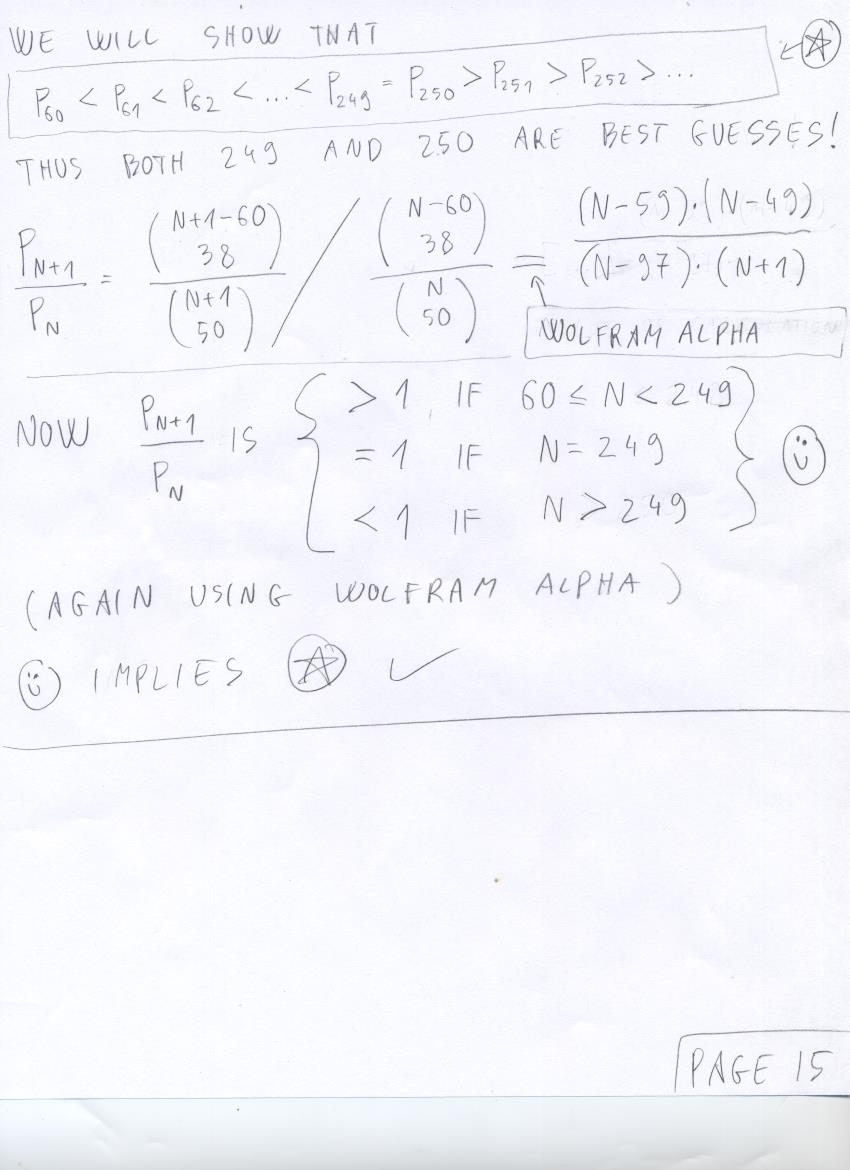 WE WILL SHOW THAT
P₆₀ < P₆₁ < P₆₂ < ... < P₂₄₉ = P₂₅₀ > P₂₅₁ > P₂₅₂ > ... ← ☆
THUS BOTH 249 AND 250 ARE BEST GUESSES!
P_{N+1} / P_N = [ (N+1-60 38) / (N+1 50) ] / [ (N-60 38) / (N 50) ] = (N-59)·(N-49) / (N-97)·(N+1)
WOLFRAM ALPHA
NOW P_{N+1} / P_N IS { > 1 IF 60 ≤ N < 249
= 1 IF N = 249
< 1 IF N > 249 } ☺
(AGAIN USING WOLFRAM ALPHA)
☺ IMPLIES ☆ ✓
PAGE 15